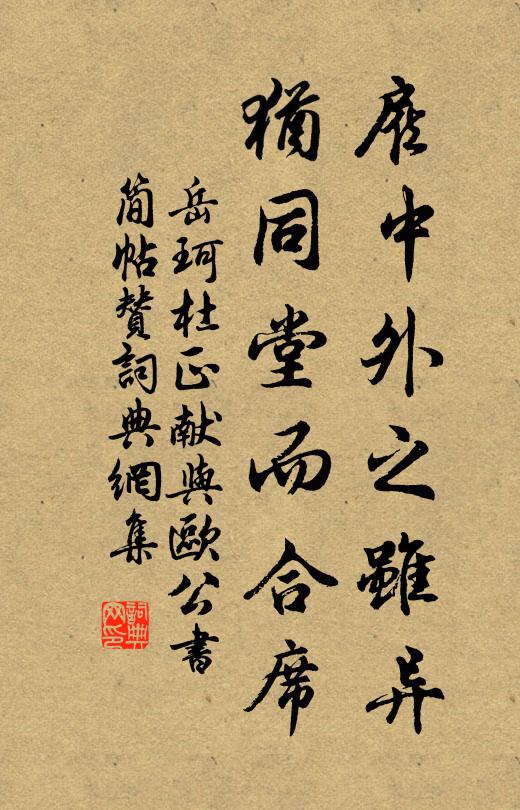 廐中外之雖异
猶同堂而合席
岳珂杜正献與歐公書
简帖贊詞典網集
詞典网印